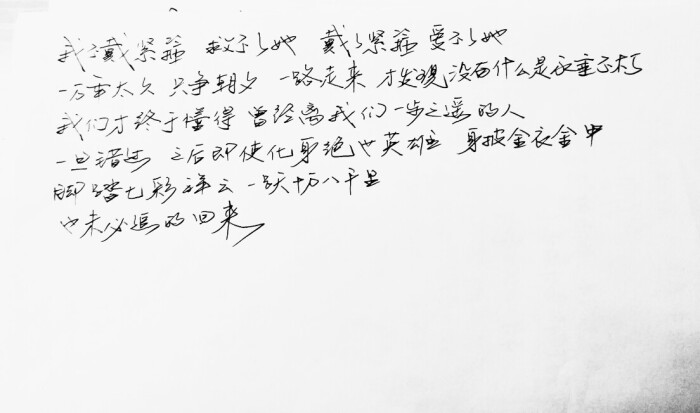 我不戴紧箍 救不了她 戴了紧箍 爱不了她
一万年太久 只争朝夕 一路走来 才发现没有什么是永垂不朽
我们才终于懂得 曾经离我们一步之遥的人
一旦错过 之后即使化身绝世英雄 身披金衣金甲
脚踏七彩祥云 一跃十万八千里
也未必追的回来